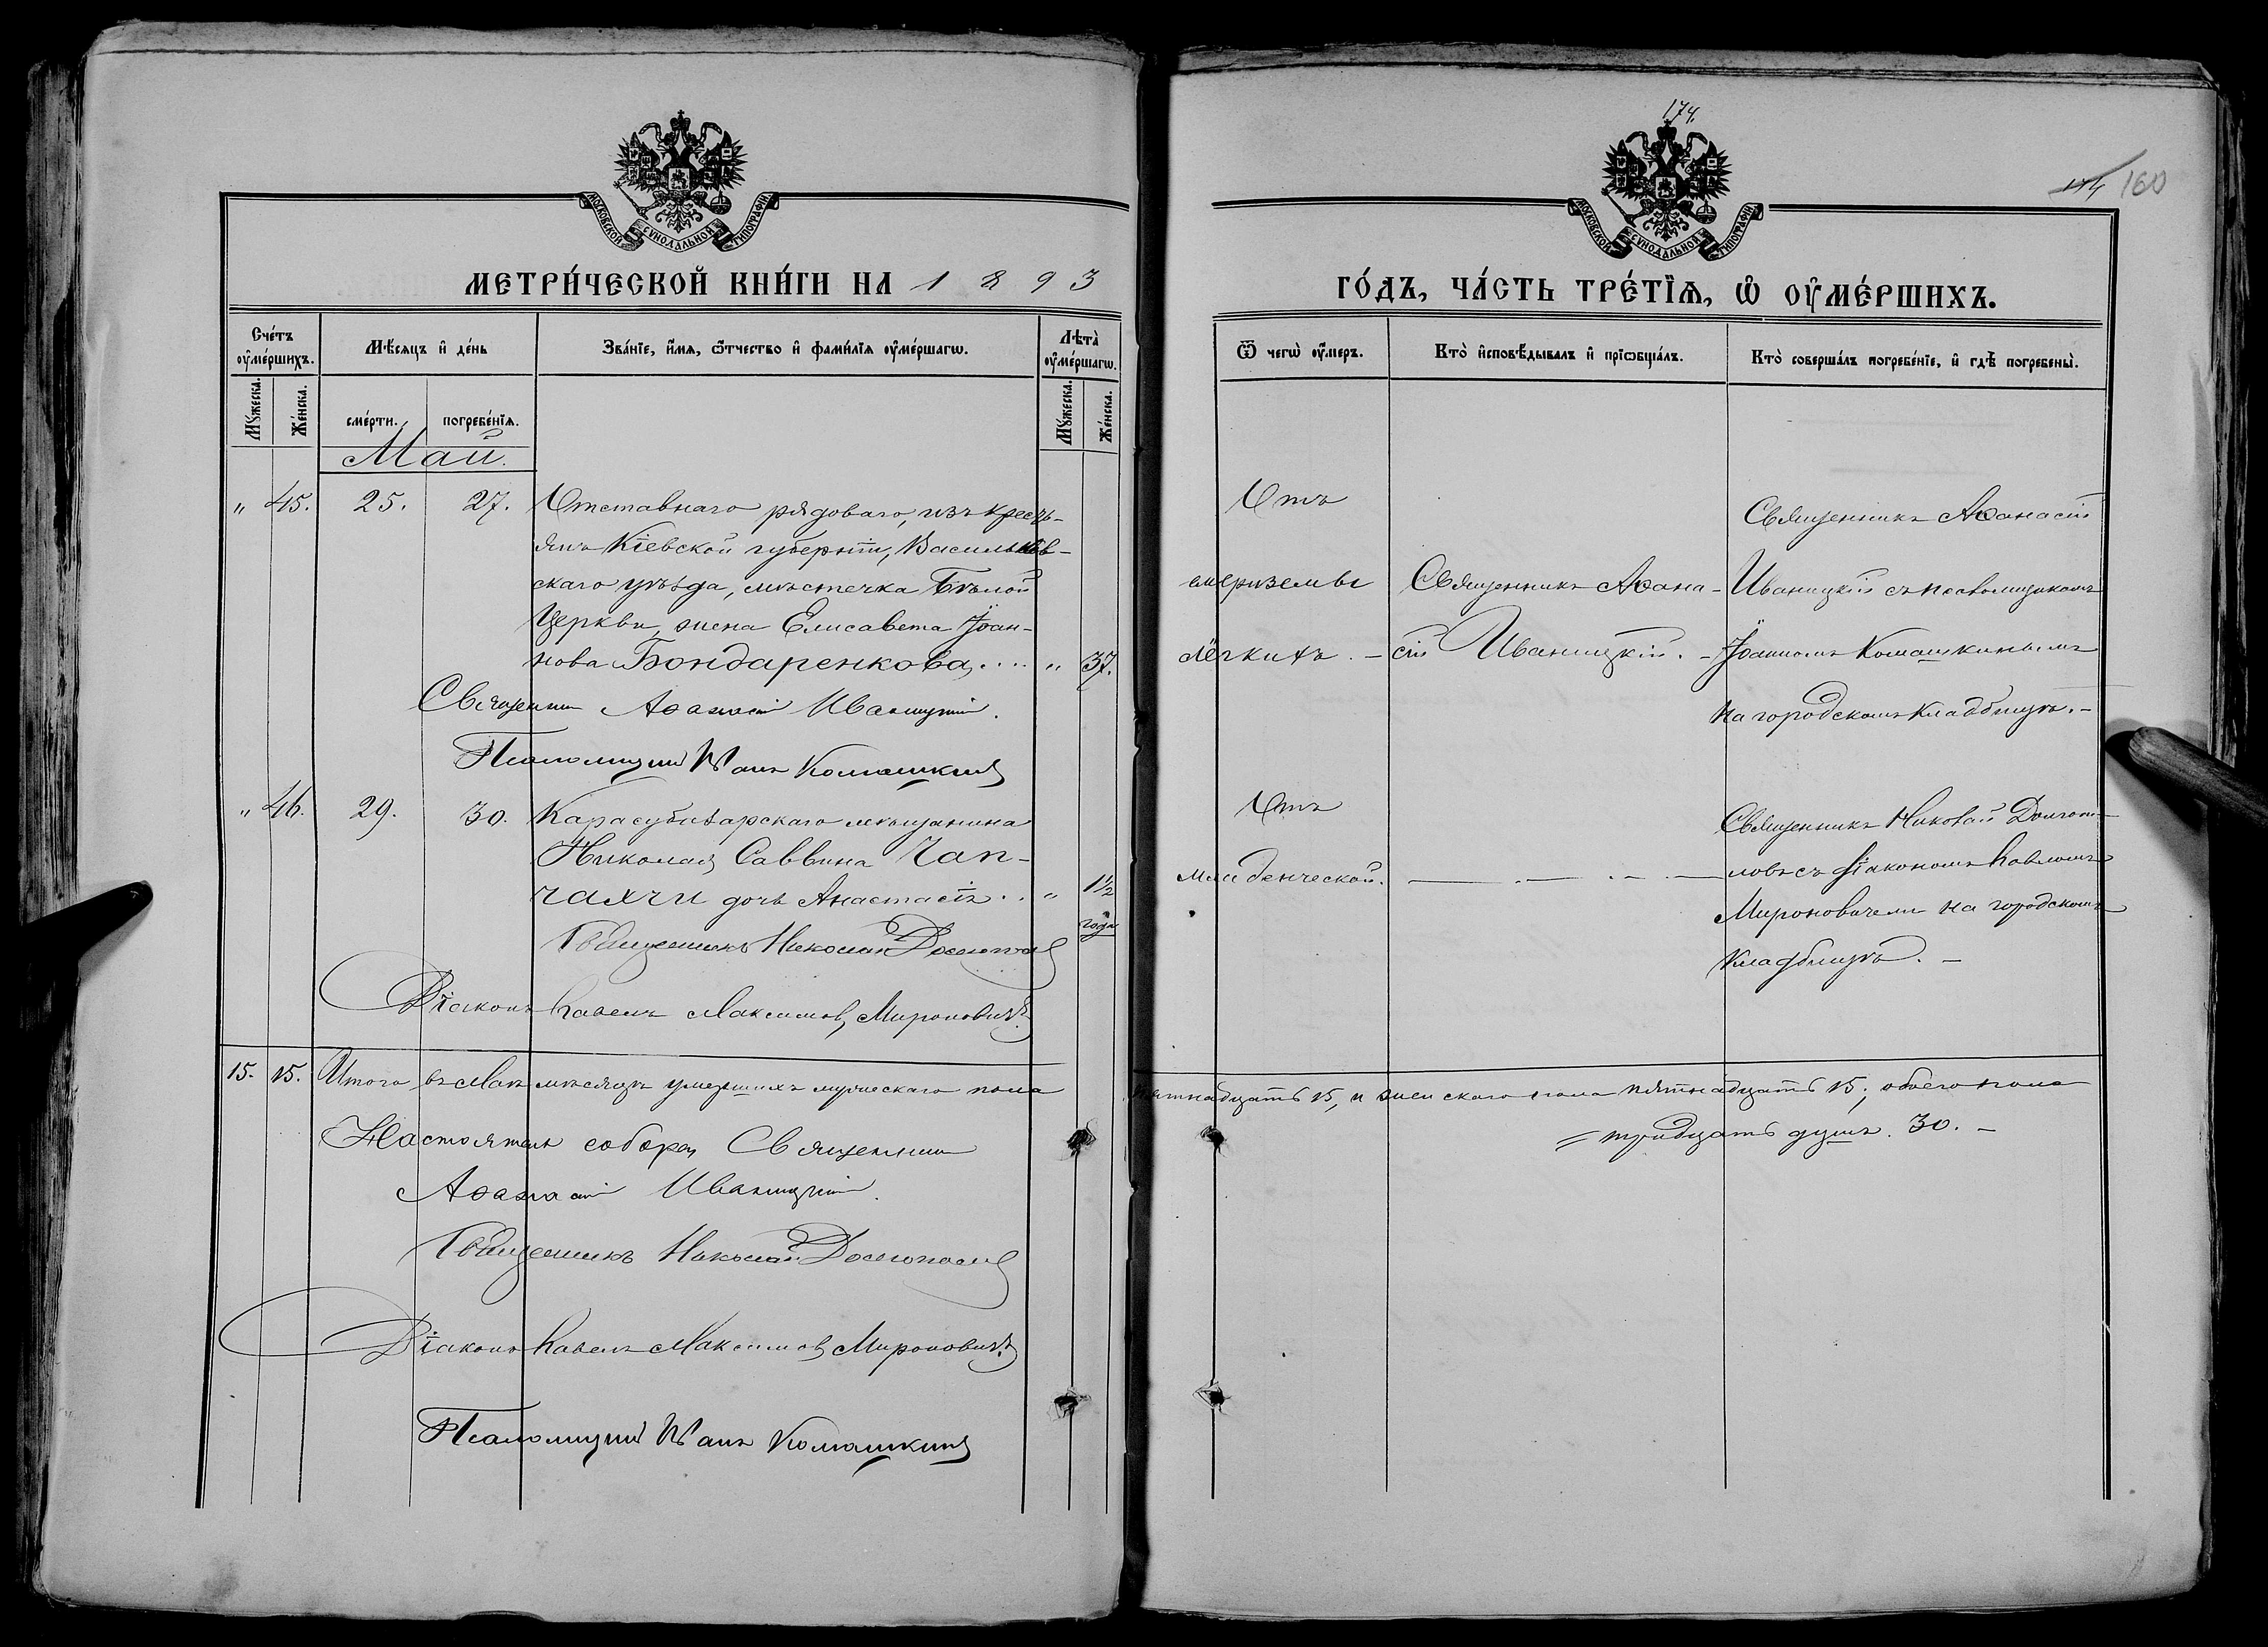 МОСКОВСКОЙ СѴНОДАЛЬНОЙ ТИПОГРАФІИ
МЕТРИ́ЧЕСКОЙ КНИ́ГИ НА 1893
Сче́тъ оу҆ме́ршихъ.
Мѣ́сяцъ и҆ де́нь
Зва́нїе, и҆́мя, ѻ҆́тчество и҆ фами́лїя оу҆ме́ршагѡ.
Лѣта̀ оу҆ме́ршагѡ.
Мꙋ́жеска.
Же́нска.
сме́рти.
погребе́нїя.
Мꙋ́жеска.
Же́нска.
Май.
„ 45. 25. 27. Отставнаго рядоваго, изъ кресть-
янъ Кіевской губерніи, Васильков-
скаго уѣзда, мѣстечка Бѣлой
Церкви, жена Елисавета Іоан-
нова Бондаренкова .... „ 37.
Священникъ Аѳанасій Иваницкій.
Псаломщикъ Иванъ Комашкинъ
„ 46. 29. 30. Карасубазарскаго мѣщанина
Николая Саввина Чап-
чахчи дочь Анастасія .. „ 1½
года
Священникъ Николай Долгополовъ
Діаконъ Павелъ Максимовъ Мироновичъ
15. 15. Итого въ Маѣ мѣсяцѣ умершихъ мужескаго пола
Настоятель собора, Священникъ
Аѳанасій Иваницкій.
Священникъ Николай Долгополовъ
Діаконъ Павелъ Максимовъ Мироновичъ
Псаломщикъ Иванъ Комашкинъ
174.
174 160
МОСКОВСКОЙ СѴНОДАЛЬНОЙ ТИПОГРАФІИ
ГО́ДЪ, ЧА́СТЬ ТРЕ́ТЇѦ, Ѡ҆ ОУ҆МЕ́РШИХЪ.
Ѿ чегѡ̀ оу҆́меръ.
Кто̀ и҆сповѣ́дывалъ и҆ прїѡбща́лъ.
Кто̀ соверша́лъ погребе́нїе, и҆ гдѣ̀ погребены̀.
Отъ
эмфиземы
лёгкихъ. –
Священникъ Аѳана-
сій Иваницкій. –
Священникъ Аѳанасій
Иваницкій съ псаломщикомъ
Іоанномъ Комашкинымъ
на городскомъ кладбищѣ. –
Отъ
младенческой.
Священникъ Николай Долгопо-
ловъ съ діакономъ Павломъ
Мироновичемъ на городскомъ
кладбищѣ. –
пятнадцать 15, и женскаго пола пятнадцать 15; обоего пола
= тридцать душъ. 30. –